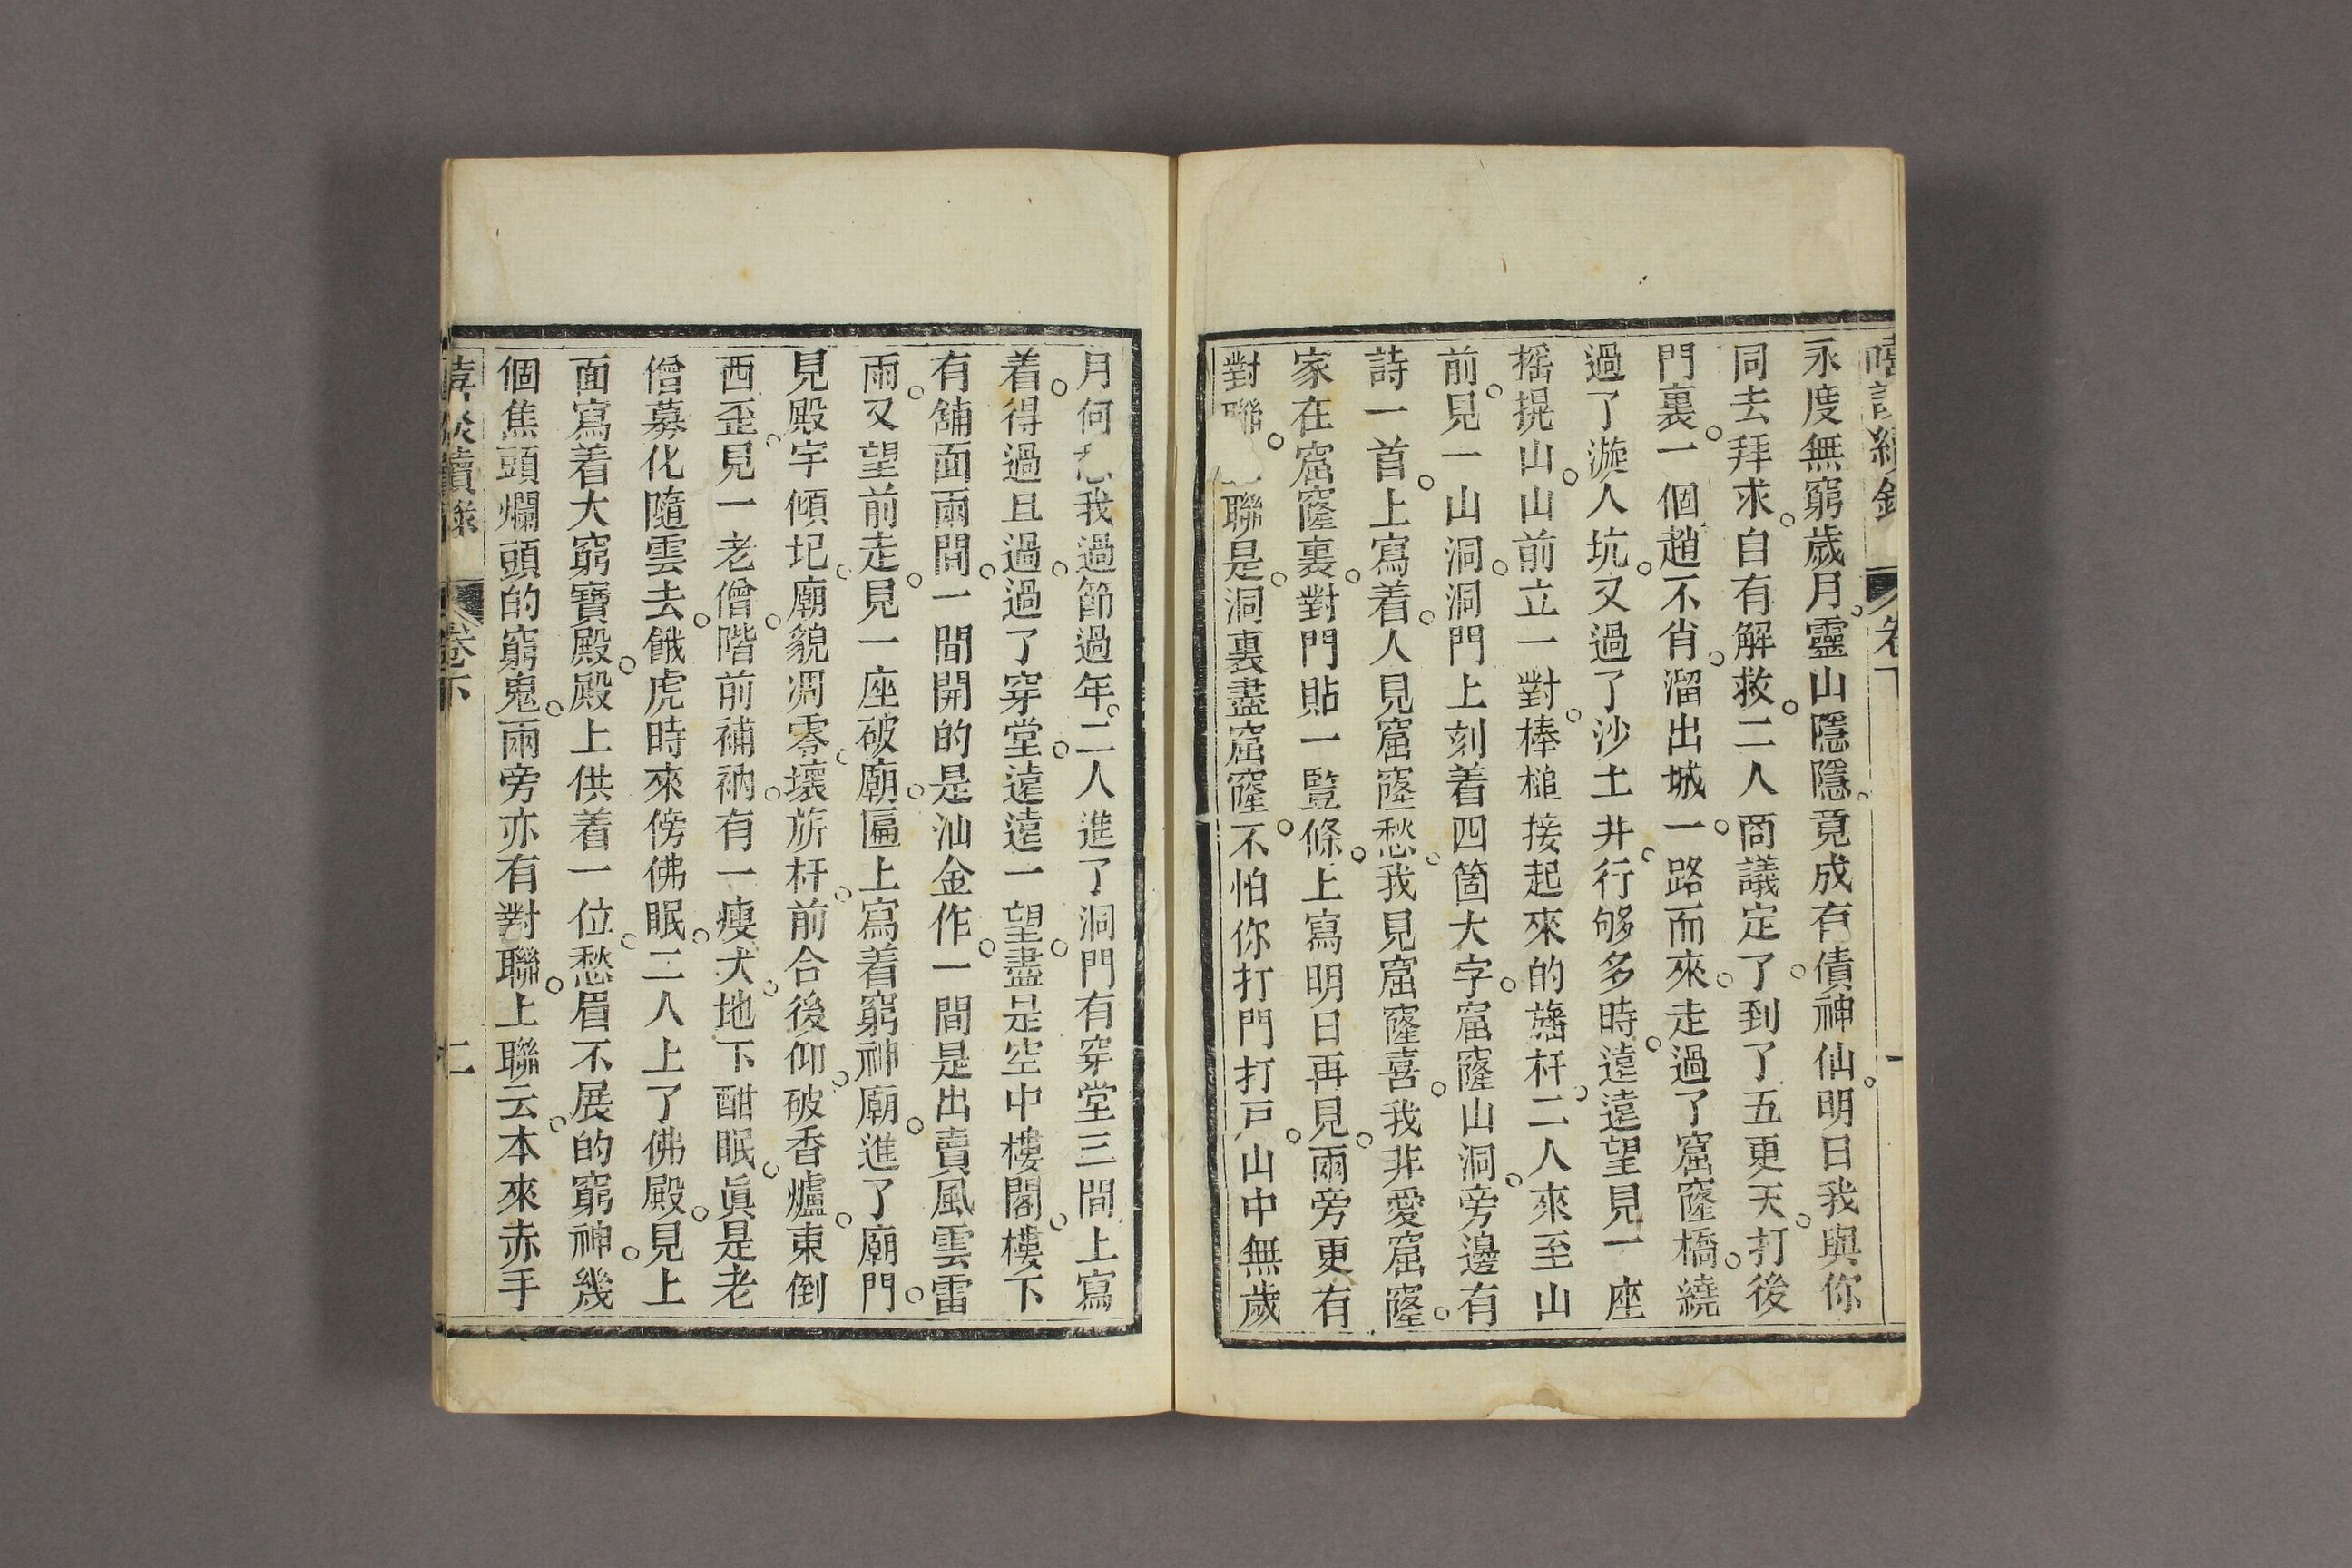 永度無窮歲月靈山隱隱竟成有債神仙明日我與你
同去拜求自有解救二人商議定了到了五更天打後
門裏一個趙不肖溜出城一路而來走過了窟窿橋繞
過了漩人坑又過了沙土井行够多時遠遠望見一座
摇提山山前立一對棒槌接起來的旛杆二人來至山
前見一山洞洞門上刻着四箇大字窟窿山洞旁邊有
詩一首上寫着人見窟窿愁我見窟窿喜我非愛窟窿
家在窟窿裏對門貼一覧條上寫明日再見兩旁更有
對聯聯是洞裏盡窟窿不怕你打門打戸山中無歲
月何我過節過年二人進了洞門有穿堂三間上寫
着得過且過過了穿堂遠遠一望盡是空中樓閣樓下
有舖面兩間一間開的是汕金作一間是出賣風雲雷
雨又望前走見一座破廟匾上寫着窮神廟進了廟門
見殿宇傾圯廟貌凋零壞旂杆前合後仰破香爐東倒
西歪見一老僧階前補衲有一瘦犬地下酣眠眞是老
僧募化隨雲去餓虎時來傍佛眠二人上了佛殿見上
面寫着大窮寶殿殿上供着一位愁眉不展的窮神幾
個焦頭爛頭的窮鬼兩旁亦有對聯上聯云本來赤手
卷下
二